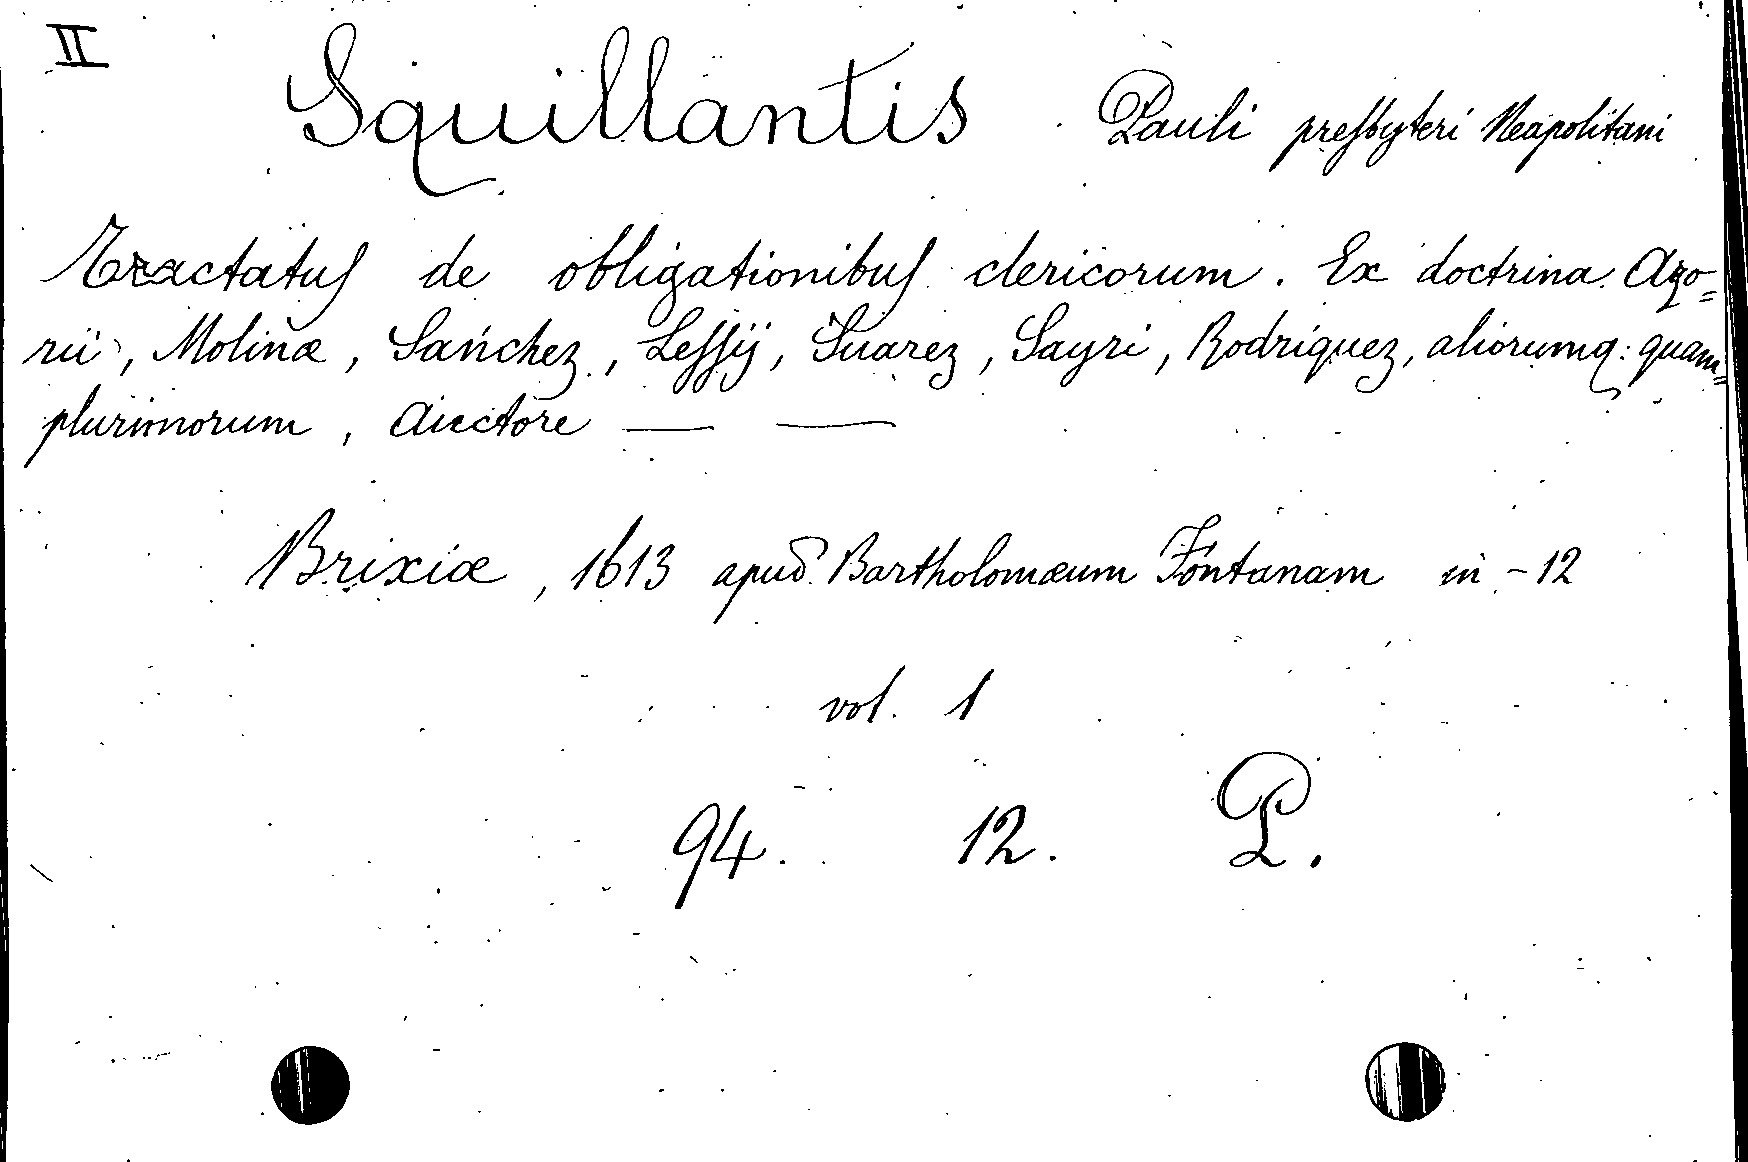 II
Squillantis Pauli presbyteri Neapolitani
Tractatus de obligationibus clericorum. Ex doctrina Azo=
rii, Molinæ, Sanchez, Lessij, Suarez, Sayri, Rodriquez, aliorumq: quam=
plurimorum, Auctore — —
Brixiæ, 1613 apud Bartholomæum Fontanam in -12
vol. 1
94. 12. P.